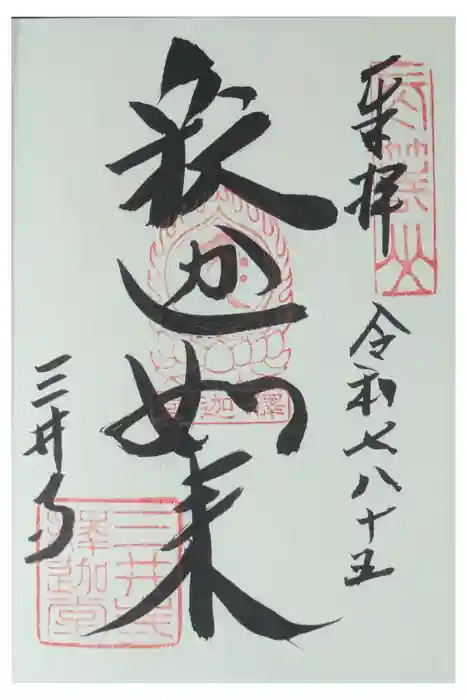 奉拝
長等山
令和七八十五
釈迦如来
釋迦
三井寺
三井寺
釋迦堂